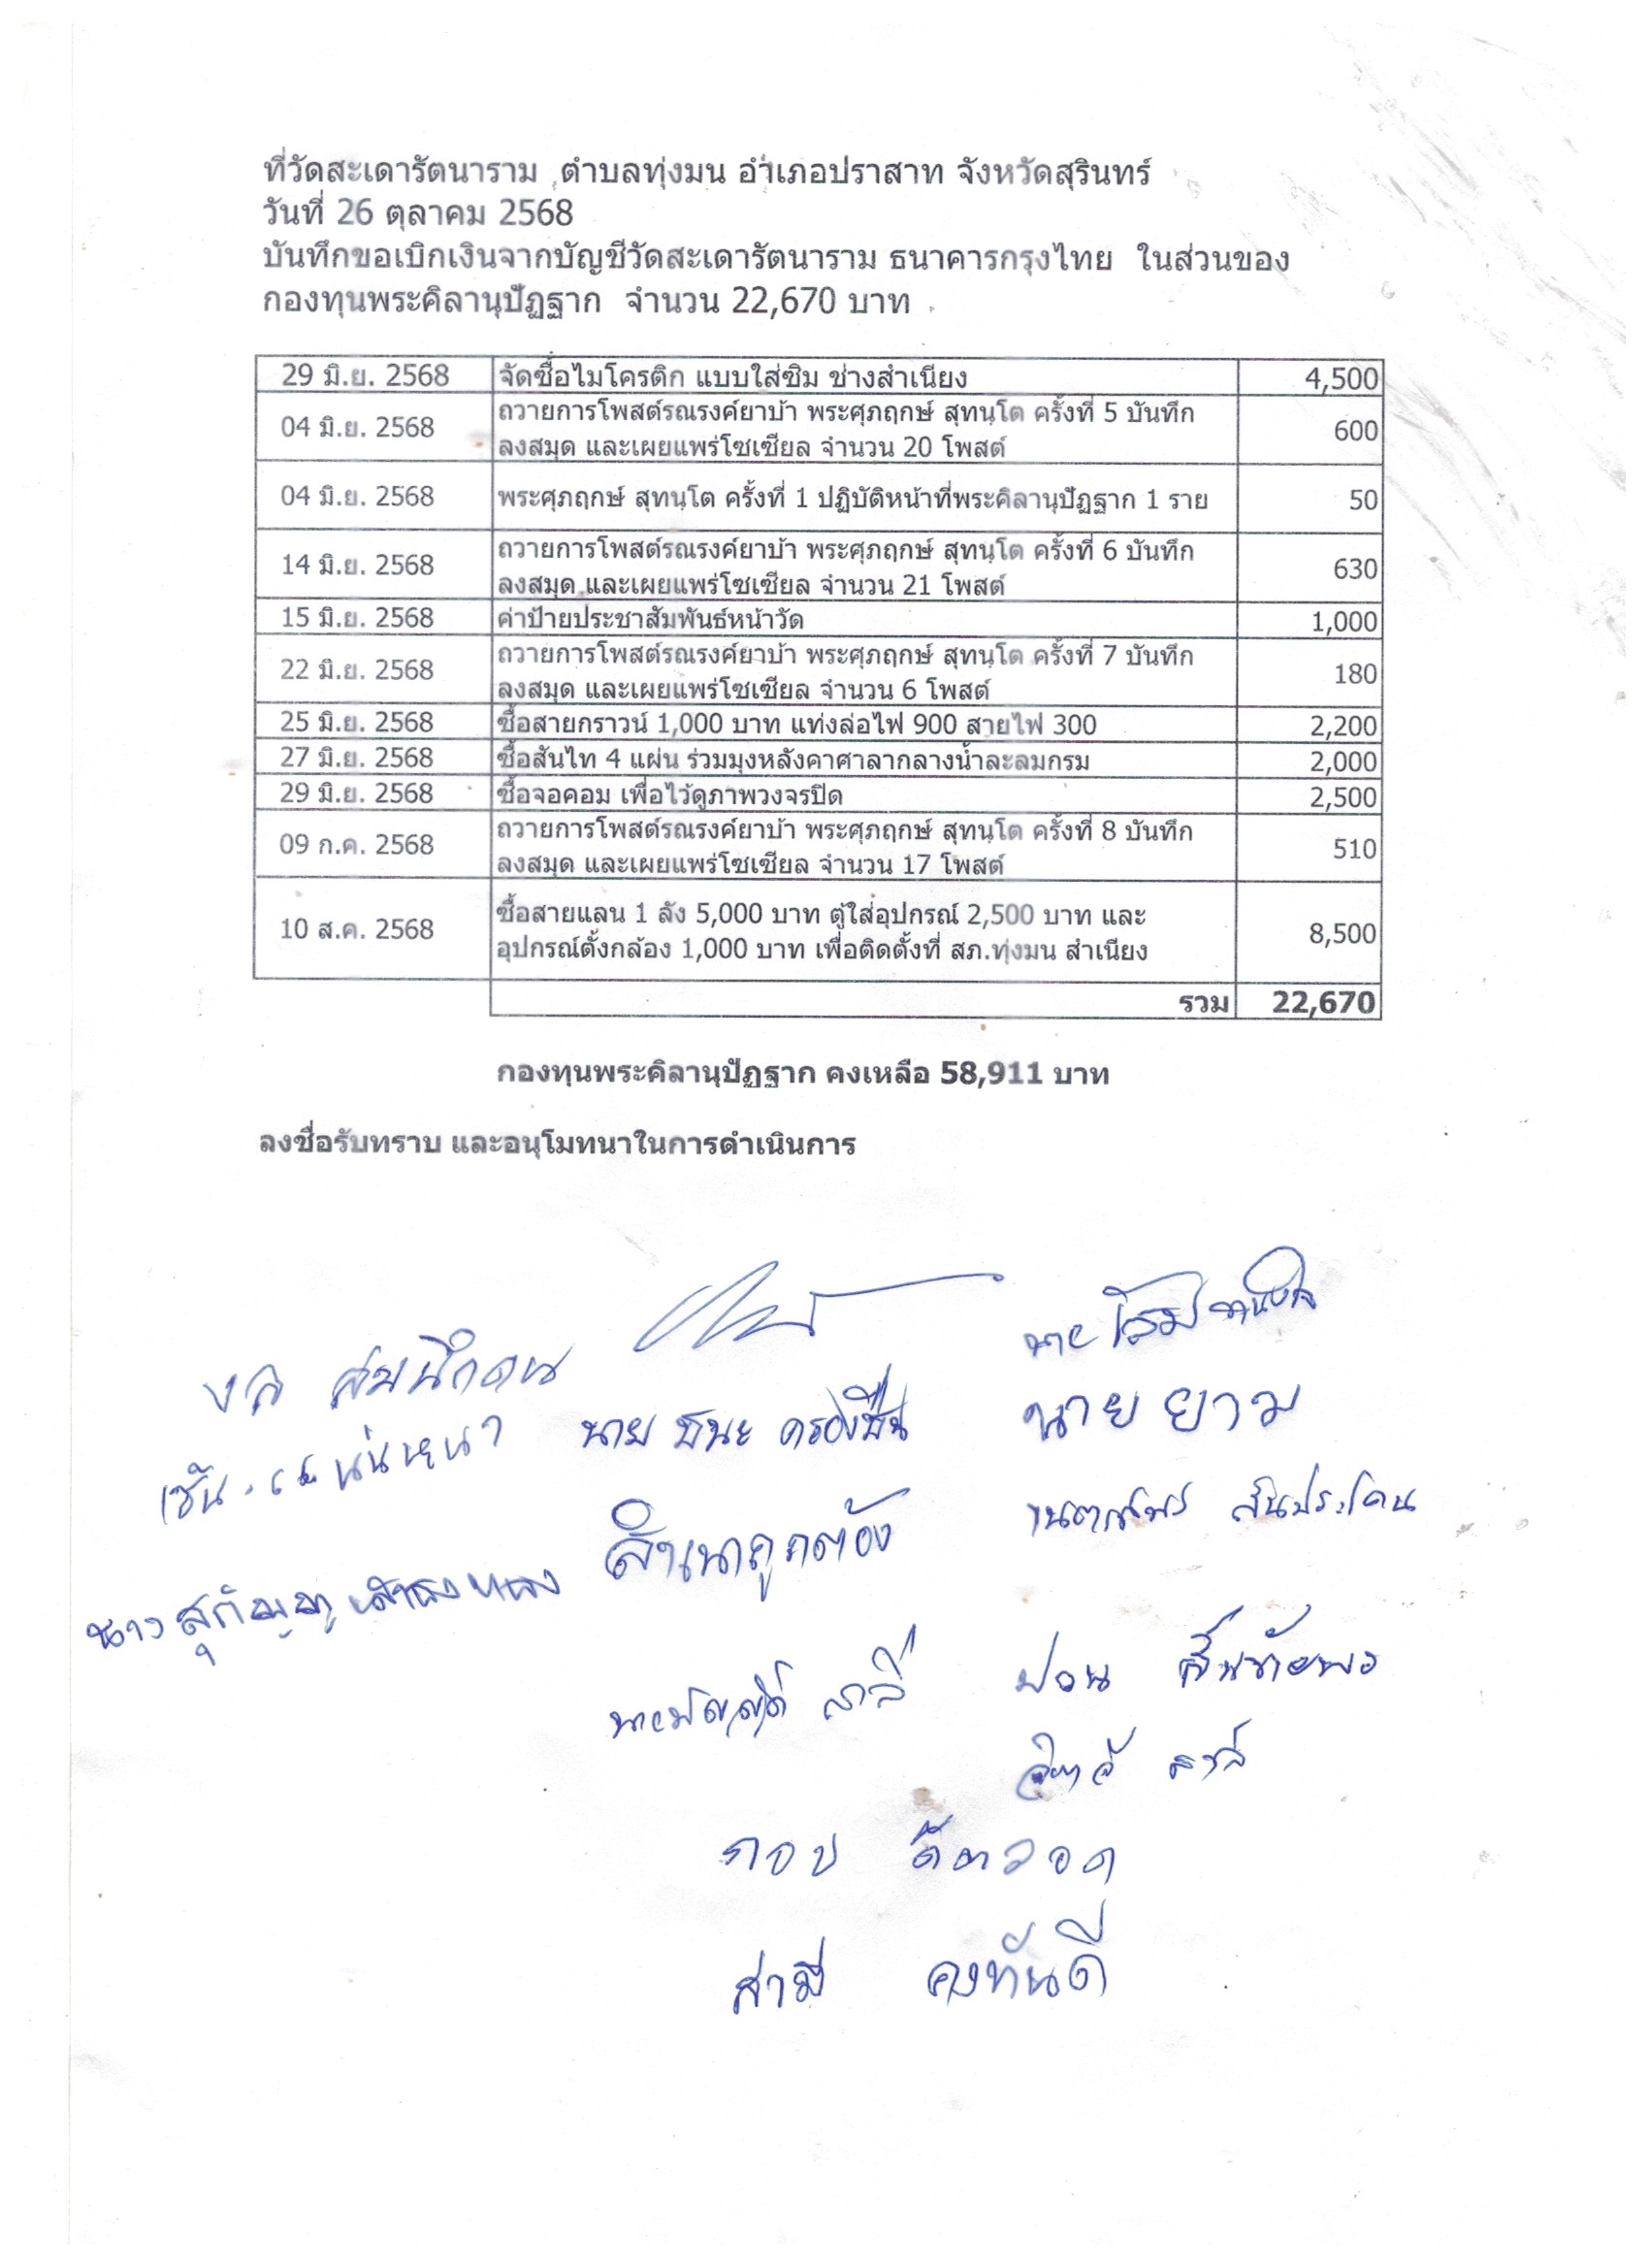 ที่วัดสะเดารัตนาราม ตำบลทุ่งมน อำเภอปราสาท จังหวัดสุรินทร์
วันที่ 26 ตุลาคม 2568
บันทึกขอเบิกเงินจากบัญชีวัดสะเดารัตนาราม ธนาคารกรุงไทย ในส่วนของ
กองทุนพระคิลานุปัฏฐาก จำนวน 22,670 บาท
29 มิ.ย. 2568 จัดซื้อไมโครติก แบบใส่ซิม ช่างสำเนียง 4,500
04 มิ.ย. 2568 ถวายการโพสต์รณรงค์ยาบ้า พระศุภฤกษ์ สุทนฺโต ครั้งที่ 5 บันทึก
ลงสมุด และเผยแพร่โซเชียล จำนวน 20 โพสต์ 600
04 มิ.ย. 2568 พระศุภฤกษ์ สุทนฺโต ครั้งที่ 1 ปฏิบัติหน้าที่พระคิลานุปัฏฐาก 1 ราย 50
14 มิ.ย. 2568 ถวายการโพสต์รณรงค์ยาบ้า พระศุภฤกษ์ สุทนฺโต ครั้งที่ 6 บันทึก
ลงสมุด และเผยแพร่โซเชียล จำนวน 21 โพสต์ 630
15 มิ.ย. 2568 ค่าป้ายประชาสัมพันธ์หน้าวัด 1,000
22 มิ.ย. 2568 ถวายการโพสต์รณรงค์ยาบ้า พระศุภฤกษ์ สุทนฺโต ครั้งที่ 7 บันทึก
ลงสมุด และเผยแพร่โซเชียล จำนวน 6 โพสต์ 180
25 มิ.ย. 2568 ซื้อสายกราวน์ 1,000 บาท แท่งล่อไฟ 900 สายไฟ 300 2,200
27 มิ.ย. 2568 ซื้อสันไท 4 แผ่น ร่วมมุงหลังคาศาลากลางน้ำละลมกรม 2,000
29 มิ.ย. 2568 ซื้อจอคอม เพื่อไว้ดูภาพวงจรปิด 2,500
09 ก.ค. 2568 ถวายการโพสต์รณรงค์ยาบ้า พระศุภฤกษ์ สุทนฺโต ครั้งที่ 8 บันทึก
ลงสมุด และเผยแพร่โซเชียล จำนวน 17 โพสต์ 510
10 ส.ค. 2568 ซื้อสายแลน 1 ลัง 5,000 บาท ตู้ใส่อุปกรณ์ 2,500 บาท และ
อุปกรณ์ตั้งกล้อง 1,000 บาท เพื่อติดตั้งที่ สภ.ทุ่งมน สำเนียง 8,500
รวม 22,670
กองทุนพระคิลานุปัฏฐาก คงเหลือ 58,911 บาท
ลงชื่อรับทราบ และอนุโมทนาในการดำเนินการ
นาย ชนะ ครองชื่น
นาย ยาม
สำเนาถูกต้อง
นาง
สาลี
กอบ
สามี คงทันดี